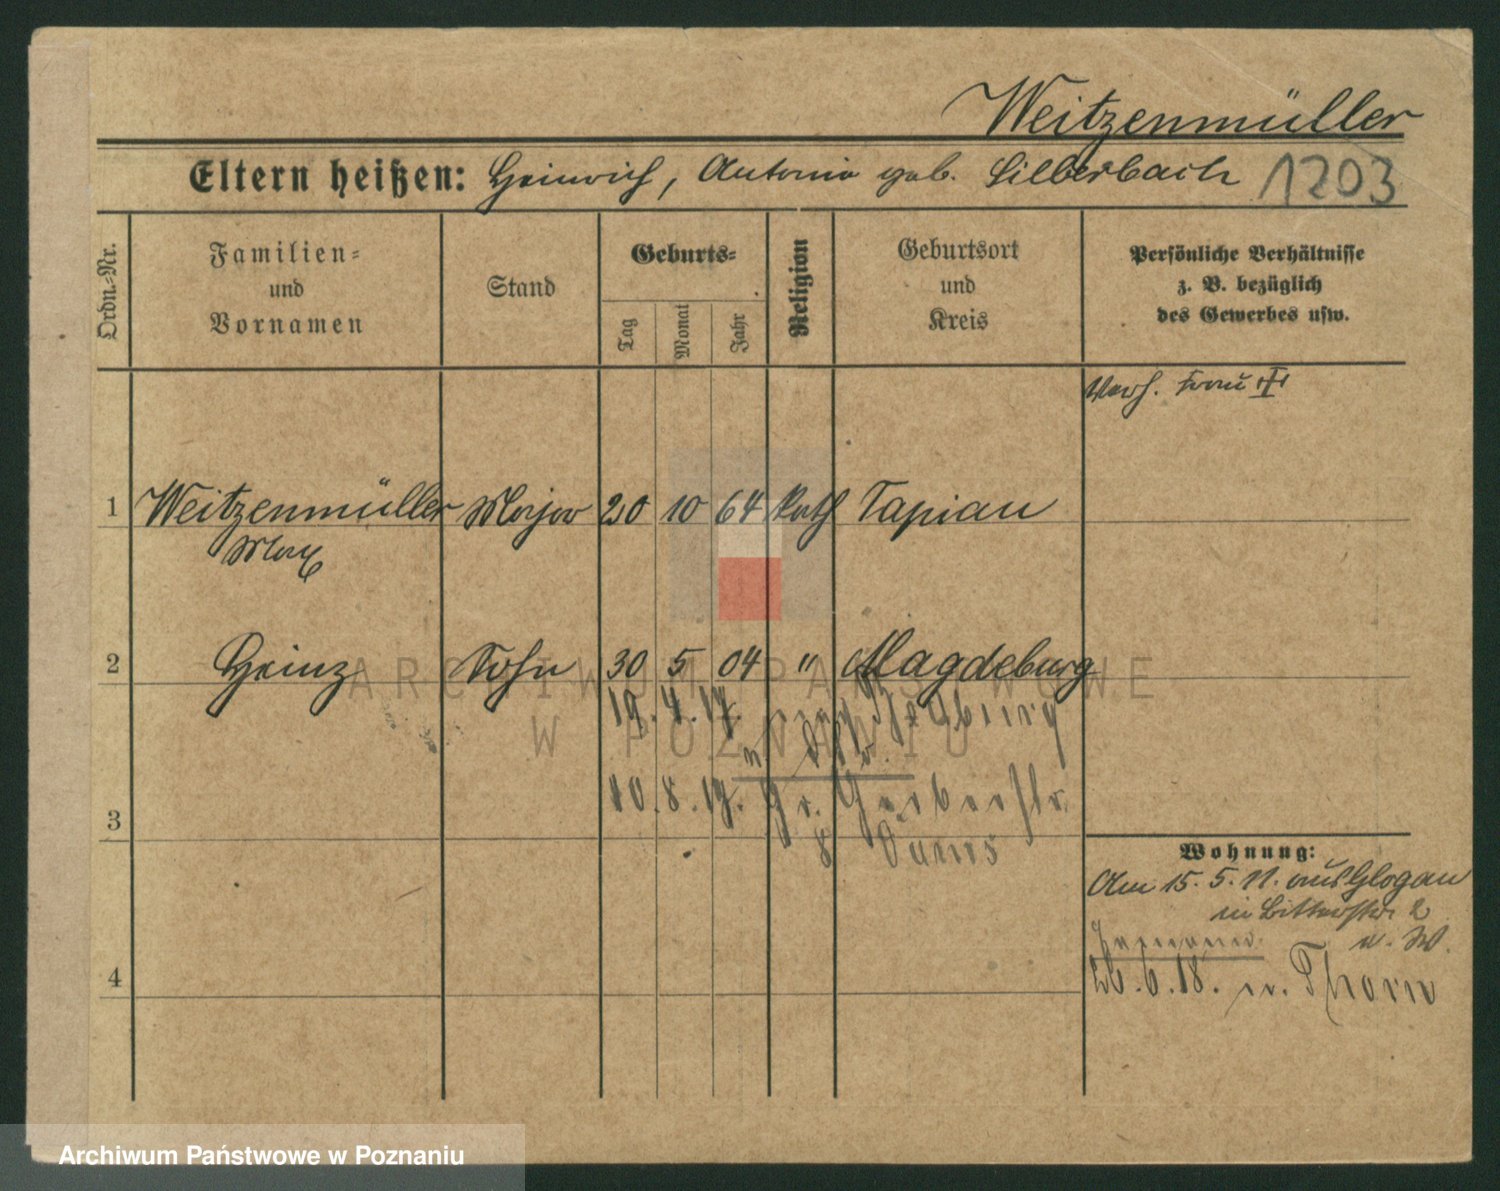 Weitzenmüller
Eltern heißen: Heinrich, Antonie geb. Silberbach 1203
Ordn.-Nr.
Familien-
und
Vornamen
Stand
Geburts-
Tag
Monat
Jahr
Religion
Geburtsort
und
Kreis
Persönliche Verhältnisse
z. B. bezüglich
des Gewerbes usw.
Verh. Frau
1 Weitzenmüller Major 20 10 64 kath Tapiau
Max
2 Heinz Sohn 30 5 04 " Magdeburg
ARCHIWUM PAŃSTWOWE
W POZNANIU
19. 4. 17.
10. 8. 17. Gr. Gerberstr.
8
3
Wohnung:
Am 15. 5. 11. aus Glogau
in Ritterstr 2
26. 6. 18. n. Thorn
4
Archiwum Państwowe w Poznaniu